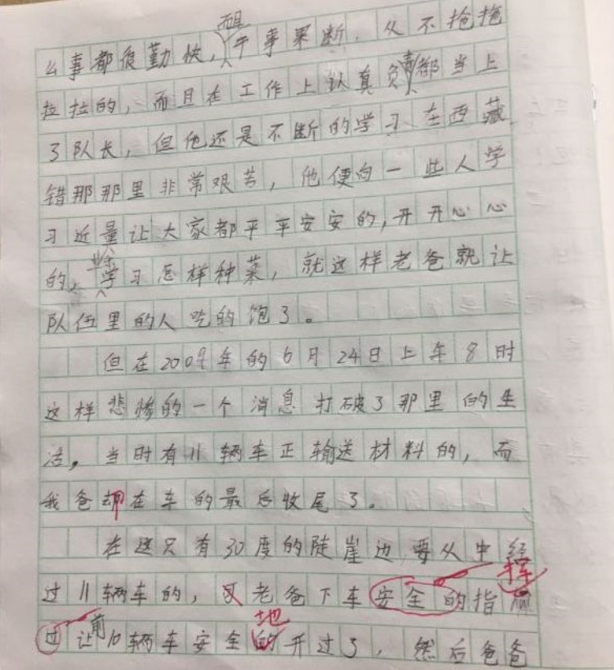 而且
么事都很勤快,干事果断.从不拖拖
拉拉的,而且在工作上认真负责都当上
了队长,但他还是不断的学习.在西藏
错那那里非常艰苦,他便向一些人学
习近量让大家都平平安安的,开开心心
的,学习怎样种菜,就这样老爸就让
队伍里的人吃的饱了。
但在2009年的6月24日上午8时
这样悲惨的一个消息打破了那里的生
活,当时有11辆车正输送材料的,而
我爸却在车的最后收尾了。
在这只有30度的陡崖边要从中经
过11辆车的,老爸下车安全的指挥
过让前10辆车安全的地开过了,然后爸爸